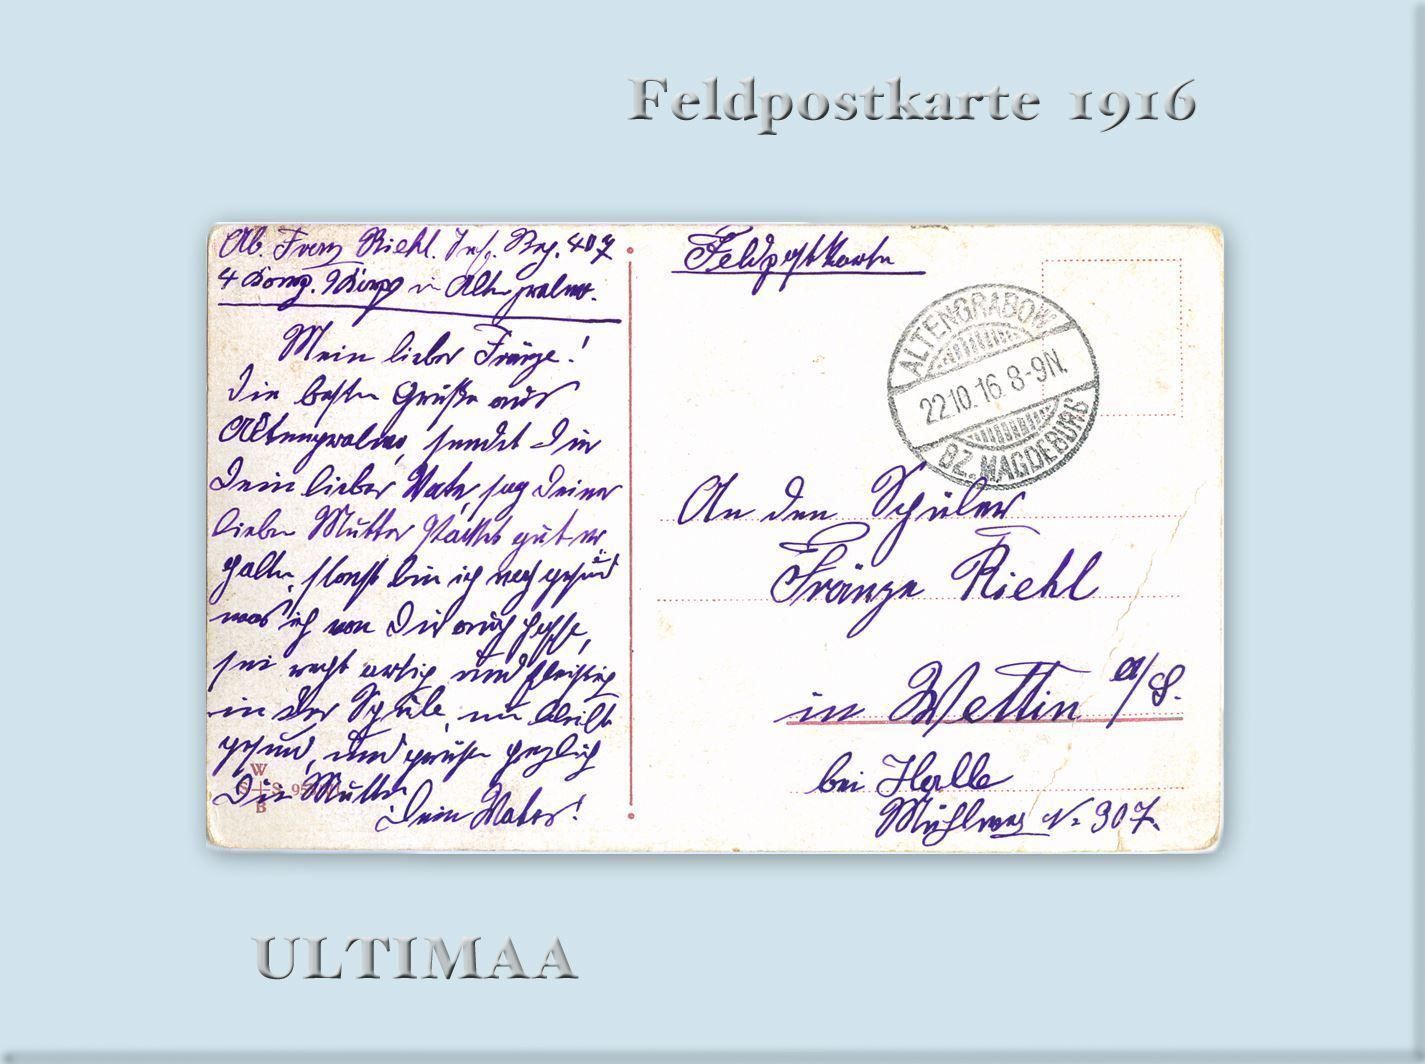 Feldpostkarte 1916
Ab. Franz Riehl. Inf. Reg. 407
4 Komp. in Altengrabow.
Mein lieber Fränze!
Die besten Grüße aus
Altengrabow, sendet Dir
Dein lieber Vater, sag Deiner
lieben Mutter gut er
halten, sonst bin ich noch gesund
was ich von Dir auch hoffe,
sei recht artig und fleißig
in der Schule, un bleibt
gesund, und grüße herzlich
Die Mutter
Dein Vater!
W
S+S
B
Feldpostkarte
ALTENGRABOW
22.10.16 8-9N.
BZ. MAGDEBURG
An den Schüler
Fränze Riehl
in Wettin a/S.
bei Halle
Mühlweg No 307.
ULTIMAA